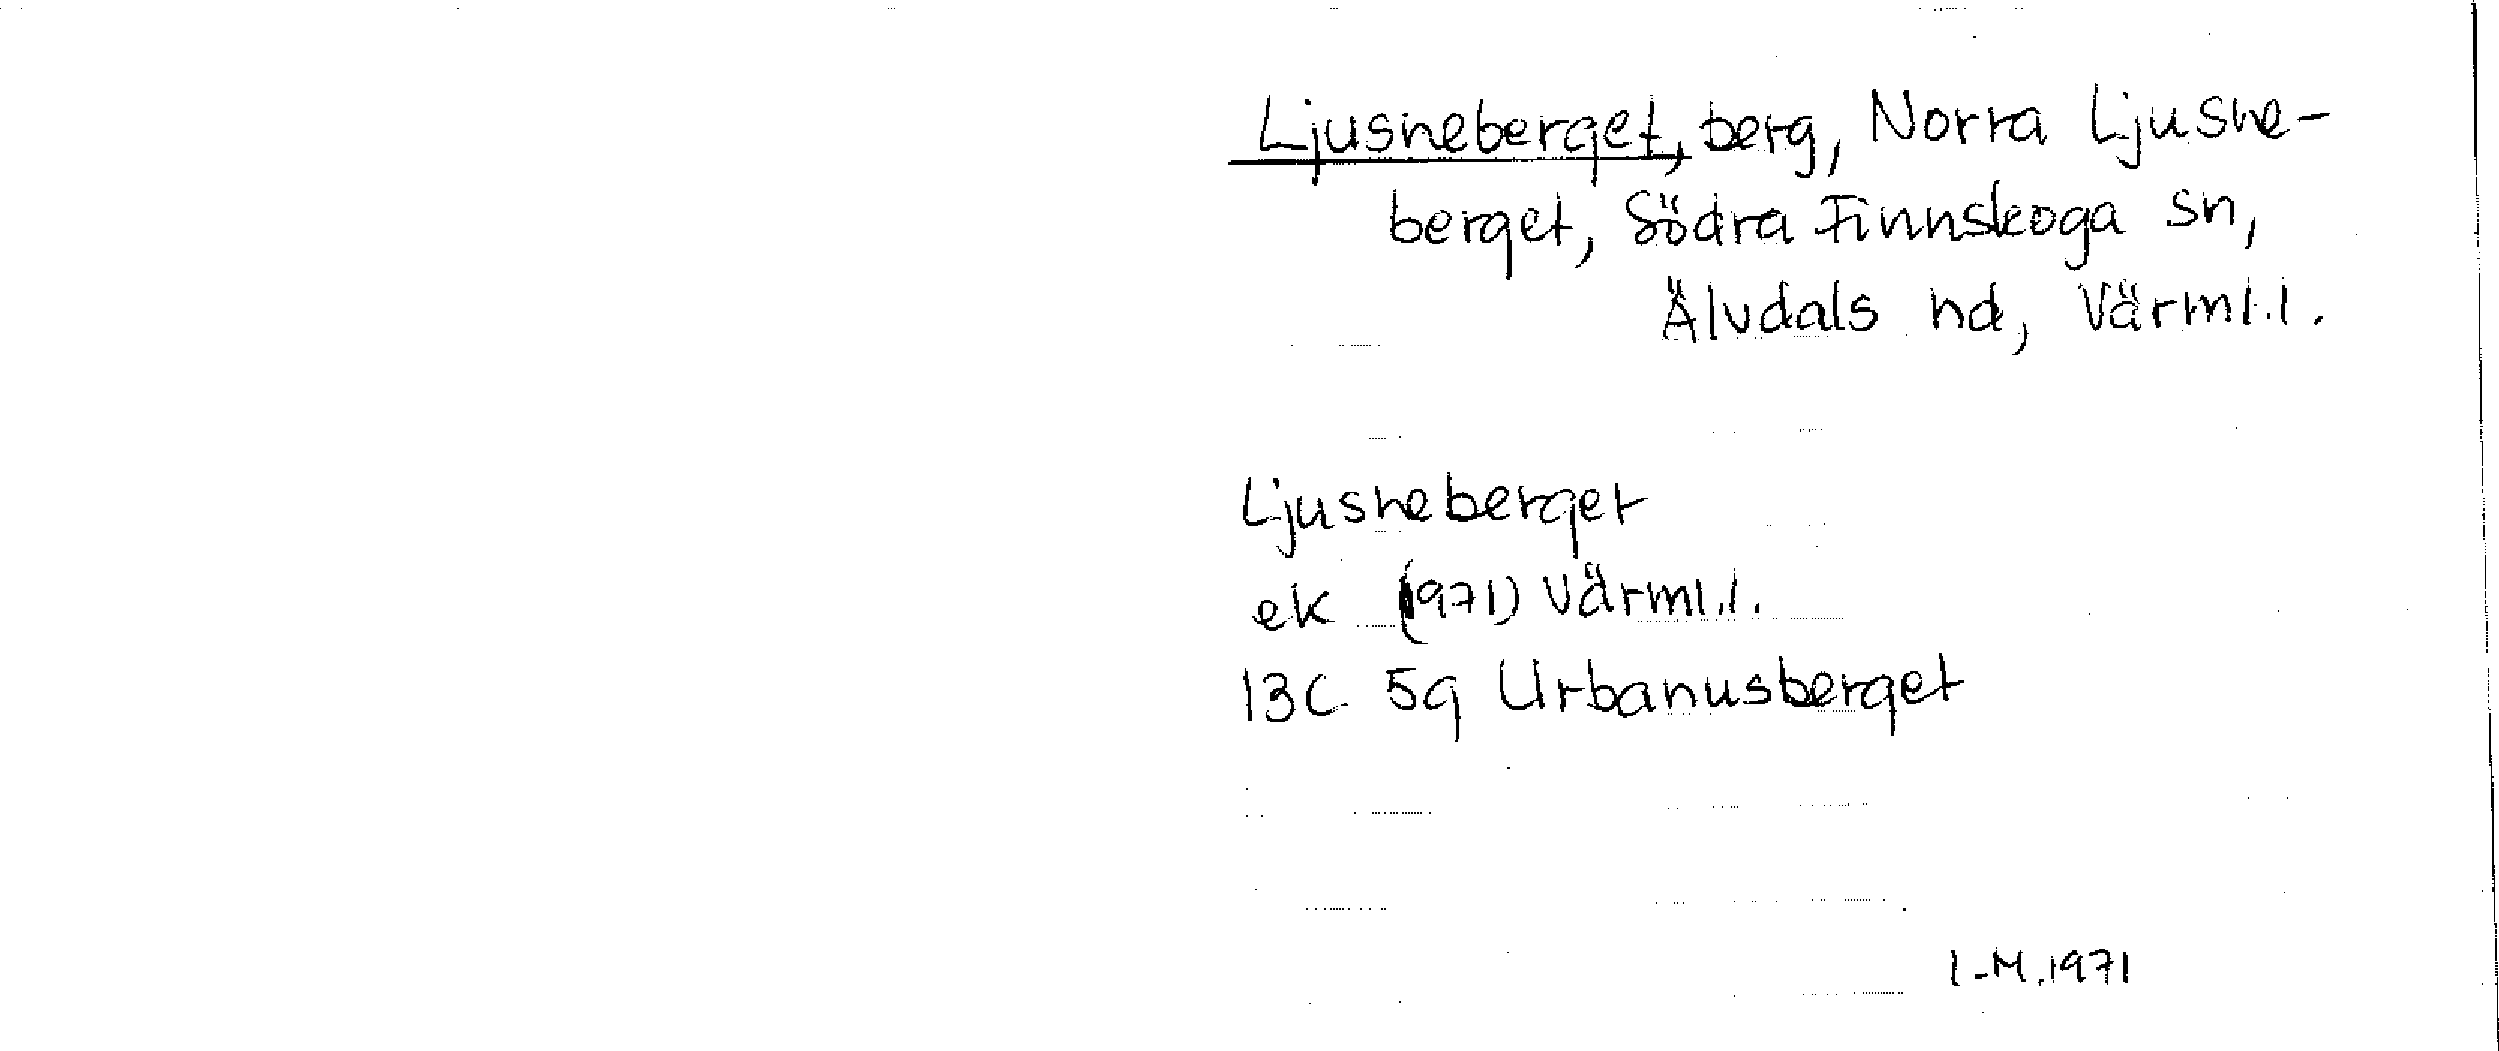 Ljusneberget, berg, Norra Ljusne-
berget, Södra Finnskoga sn,
Älvdals hd, Värml.l.
Ljusneberget
ek (1971) Värml.l.
13C 5g Urbanusberget
I-M.1971